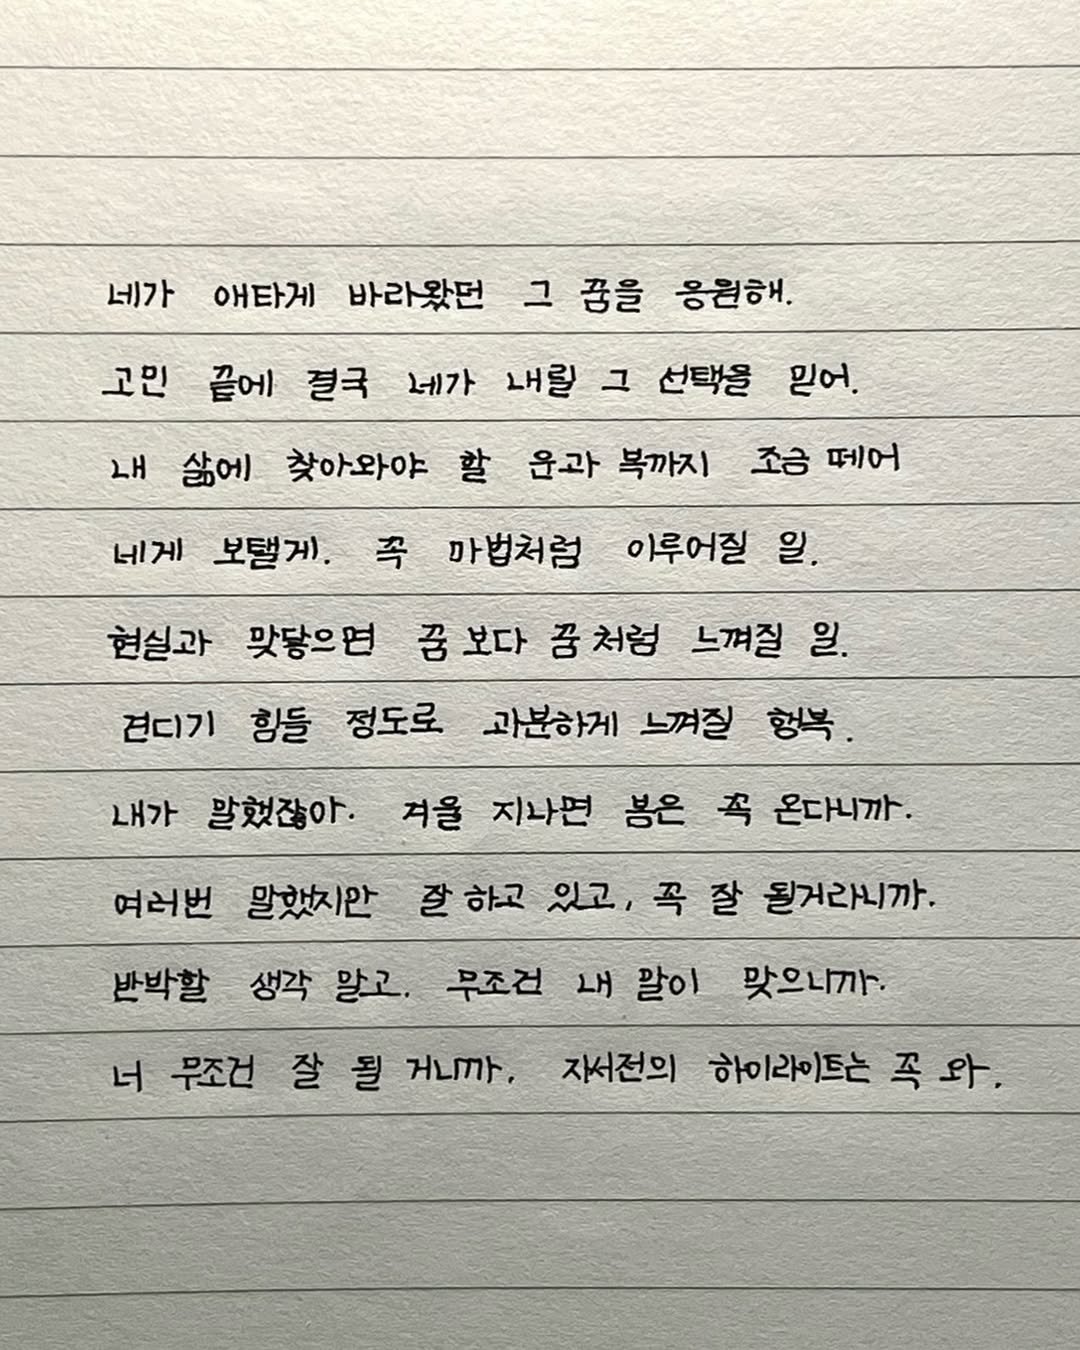 네가 애타게 바라왔던 그 꿈을 응원해.
고민 끝에 결국 네가 내릴 그 선택을 믿어.
내 삶에 찾아와야 할 운과 복까지 조금 떼어
네게 보탤게. 꼭 마법처럼 이루어질 일.
현실과 맞닿으면 꿈 보다 꿈 처럼 느껴질 일.
견디기 힘들 정도로 과분하게 느껴질 행복.
내가 말했잖아. 겨울 지나면 봄은 꼭 온다니까.
여러번 말했지만 잘 하고 있고, 꼭 잘 될거라니까.
반박할 생각 말고. 무조건 내 말이 맞으니까.
너 무조건 잘 될 거니까. 자서전의 하이라이트는 꼭 와.